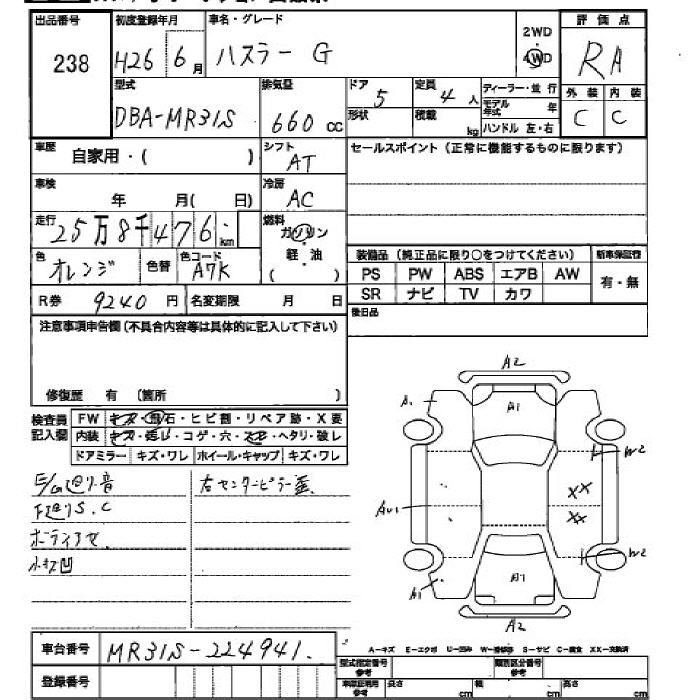 出品番号 初度登録年月 車名・グレード 評価点
238 H26年 6月 ハスラー G 2WD 4WD RA
型式 排気量 ドア 定員 ディーラー・並行 外装 内装
DBA-MR31S 660 cc 5 4人 モデル年式 年 C C
形状 積載 kg ハンドル 左・右
車歴 自家用・( ) シフト AT セールスポイント(正常に機能するものに限ります)
車検 年 月( 日) 冷房 AC
走行 25万8千476km 燃料 ガソリン
軽・油
( )
色 オレンジ 色替 色コード A7K
装備品(純正品に限り○をつけてください) 新車保証書
PS PW ABS エアB AW 有・無
SR ナビ TV カワ
R券 9240円 名変期限 月 日 後日品
注意事項申告欄(不具合内容等は具体的に記入して下さい)
修復歴 有 (箇所 )
検査員記入欄 FW キズ・飛石・ヒビ割・リペア跡・X要
内装 キズ・汚レ・コゲ・穴・スレ・ヘタリ・破レ
ドアミラー キズ・ワレ ホイール・キャップ キズ・ワレ
E/G廻り音 右センターピラー歪
下廻りS.C
ボディアセ
小キズ凹
A2
A1 A1
W2
AU1 XX
XX
W2
A1 A1
A2
車台番号 MR31S-224941.
登録番号
A-キズ E-エクボ U-凹み W-補修跡 S-サビ C-腐食 XX-交換済
型式指定番号 参考 類別区分番号 参考
車庫証明用 参考 長さ cm 幅 cm 高さ cm